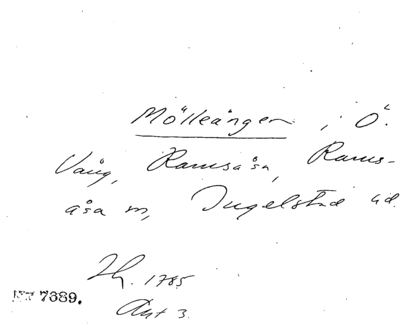 Mölleängen i Ö.
Vång, Ramsåsa, Rams-
åsa sn, Ingelstad hd.
1785
Akt 3.
7389.